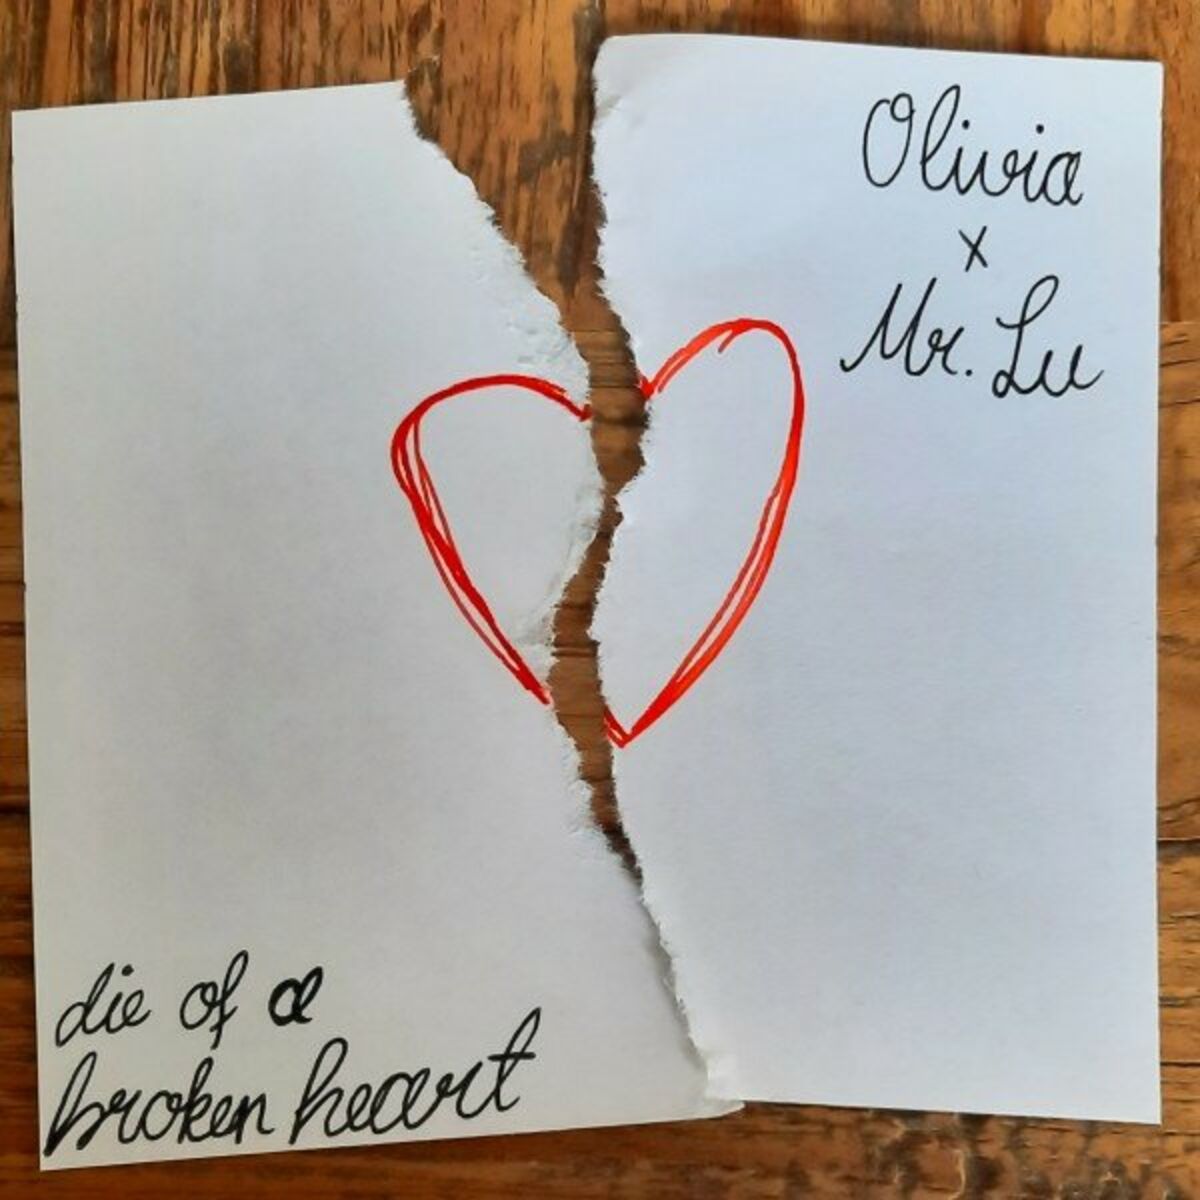 Olivia
x
Mr. Lu
die of a
broken heart